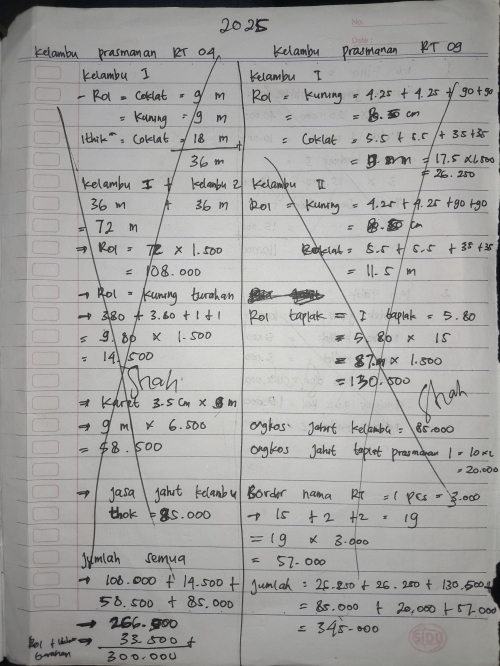 2025
No.
Date :
Kelambu prasmanan RT 04
Kelambu I
- Rol = Coklat = 9 m
= Kuning = 9 m
Ithik" = Coklat = 18 m +
36 m
Kelambu I + Kelambu 2
36 m + 36 m
= 72 m
→ Rol = 72 × 1.500
= 108.000
→ Rol = Kuning turahan
→ 3.80 + 3.80 + 1 + 1
= 9.80 × 1.500
= 14.500
→ Karet 3.5 cm × 9 m
→ 9 m × 6.500
= 58.500
→ Jasa jahit kelambu
thok = 85.000
Jumlah semua
→ 108.000 + 14.500 +
58.500 + 85.000
→ 266.500
Rol +
turahan → 33.500 +
300.000
Kelambu prasmanan RT 09
Kelambu I
Rol = Kuning = 4.25 + 4.25 + 90 + 90
= cm
= Coklat = 5.5 + 5.5 + 35 + 35
= m = 17.5 × 1.500
= 26.250
Kelambu II
Rol = Kuning = 4.25 + 4.25 + 90 + 90
= cm
Coklat = 5.5 + 5.5 + 35 + 35
= 11.5 m
Rol taplak = I taplak = 5.80
= 5.80 × 15
= 87 m × 1.500
= 130.500
ongkos jahit kelambu = 85.000
ongkos jahit taplak prasmanan 1 = 10 × 2
= 20.000
Border nama RT = 1 pcs = 3.000
→ 15 + 2 + 2 = 19
= 19 × 3.000
= 57.000
Jumlah = 26.250 + 26.250 + 130.500 +
= 85.000 + 20,000 + 57.000
= 345.000
SIDU